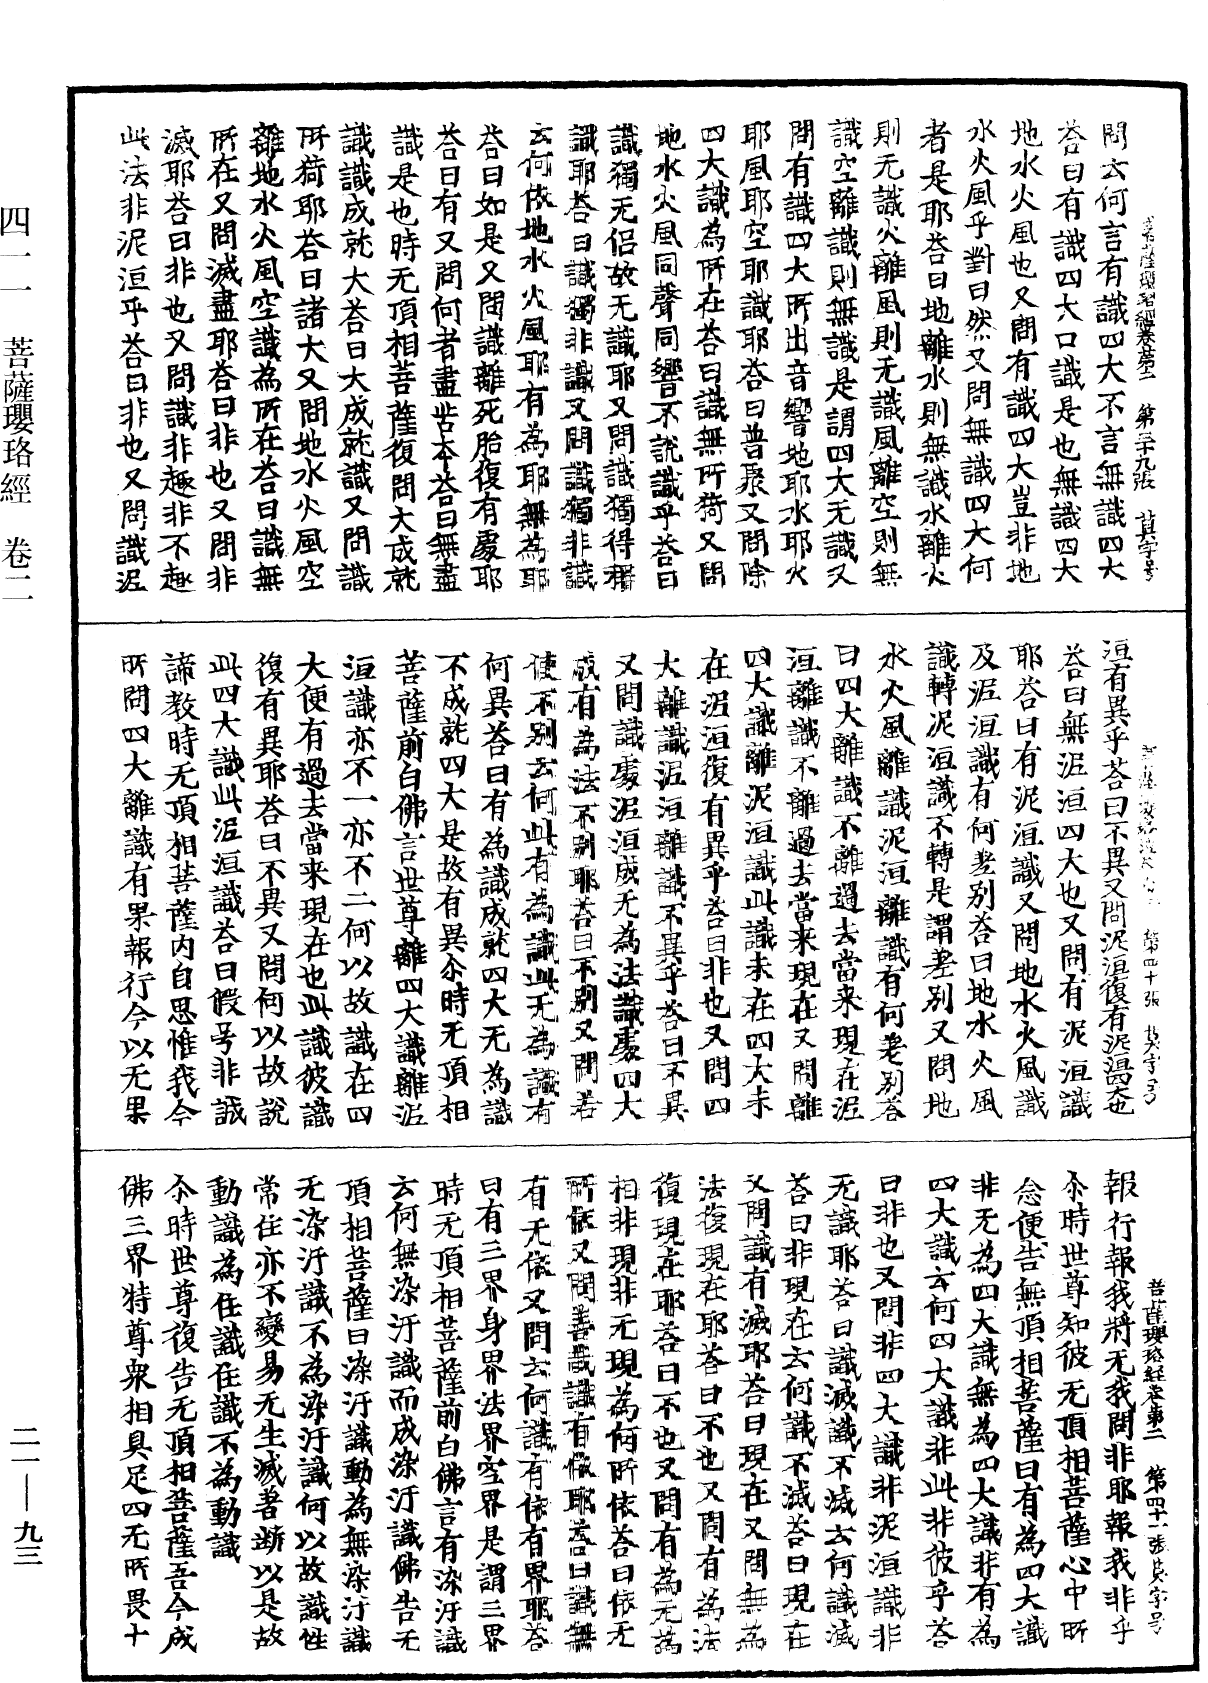 四一一　菩薩瓔珞經　卷二
二一—九三
菩薩瓔珞經卷第二　第三十九張　莫字号
問云何言有識四大不言無識四大
荅曰有識四大口識是也無識四大
地水火風也又問有識四大豈非地
水火風乎對曰然又問無識四大何
者是耶荅曰地離水則無識水離火
則无識火離風則无識風離空則無
識空離識則無識是謂四大无識又
問有識四大所出音響地耶水耶火
耶風耶空耶識耶荅曰普聚又問除
四大識為所在荅曰識無所猗又問
地水火風同聲同響不說識乎荅曰
識獨无侶故无識耶又問識獨得稱
識耶荅曰識獨非識又問識獨非識
云何依地水火風耶有為耶無為耶
荅曰如是又問識離死胎復有處耶
荅曰有又問何者盡苦本荅曰無盡
識是也時无頂相菩薩復問大成就
識識成就大荅曰大成就識又問識
所猗耶荅曰諸大又問地水火風空
離地水火風空識為所在荅曰識無
所在又問滅盡耶荅曰非也又問非
滅耶荅曰非也又問識非趣非不趣
此法非泥洹乎荅曰非也又問識泥
第四十張　莫字号
洹有異乎荅曰不異又問泥洹復有泥洹也
荅曰無泥洹四大也又問有泥洹識
耶荅曰有泥洹識又問地水火風識
及泥洹識有何差別荅曰地水火風
識轉泥洹識不轉是謂差別又問地
水火風離識泥洹離識有何差別荅
曰四大離識不離過去當来現在泥
洹離識不離過去當来現在又問離
四大識離泥洹識此識未在四大未
在泥洹復有異乎荅曰非也又問四
大離識泥洹離識不異乎荅曰不異
又問識處泥洹成无為法識處四大
成有為法不別耶荅曰不別又問若
使不別云何此有為識此无為識有
何異荅曰有為識成就四大无為識
不成就四大是故有異尒時无頂相
菩薩前白佛言世尊離四大識離泥
洹識亦不一亦不二何以故識在四
大便有過去當来現在也此識彼識
復有異耶荅曰不異又問何以故說
此四大識此泥洹識荅曰假号非誠
諦教時无頂相菩薩内自思惟我今
所問四大離識有果報行今以无果
菩薩瓔珞經卷第二　第四十一張　莫字号
報行報我將无我問非耶報我非乎
尒時世尊知彼无頂相菩薩心中所
念便告無頂相菩薩曰有為四大識
非无為四大識無為四大識非有為
四大識云何四大識非此非彼乎荅
曰非也又問非四大識非泥洹識非
无識耶荅曰識滅識不滅云何識滅
荅曰非現在云何識不滅荅曰現在
又問識有滅耶荅曰現在又問無為
法復現在耶荅曰不也又問有為法
復現在耶荅曰不也又問有為无為
相非現非无現為何所依荅曰依无
所依又問善識識有依耶荅曰識無
有无依又問云何識有依有界耶荅
曰有三界身界法界空界是謂三界
時无頂相菩薩前白佛言有染汙識
云何無染汙識而成染汙識佛告无
頂相菩薩曰染汙識動為無染汙識
无染汙識不為染汙識何以故識性
常住亦不變易无生滅著斷以是故
動識為住識住識不為動識
尒時世尊復告无頂相菩薩吾今成
佛三界特尊衆相具足四无所畏十